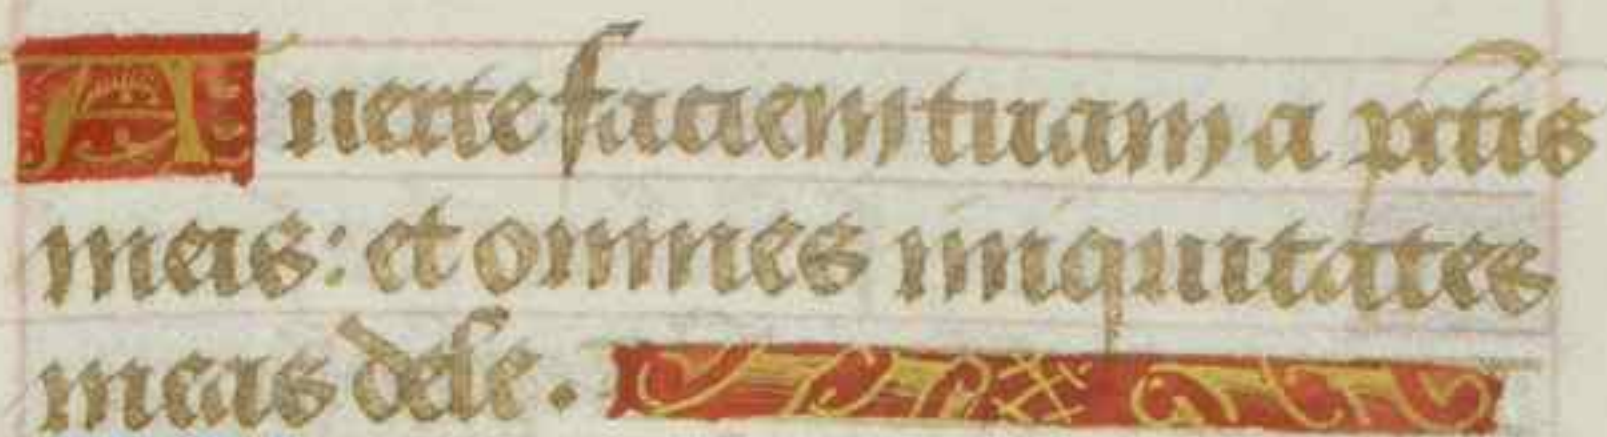 Auerte faciem tuam a pctis
meis: et omnes iniquitates
meas dele.